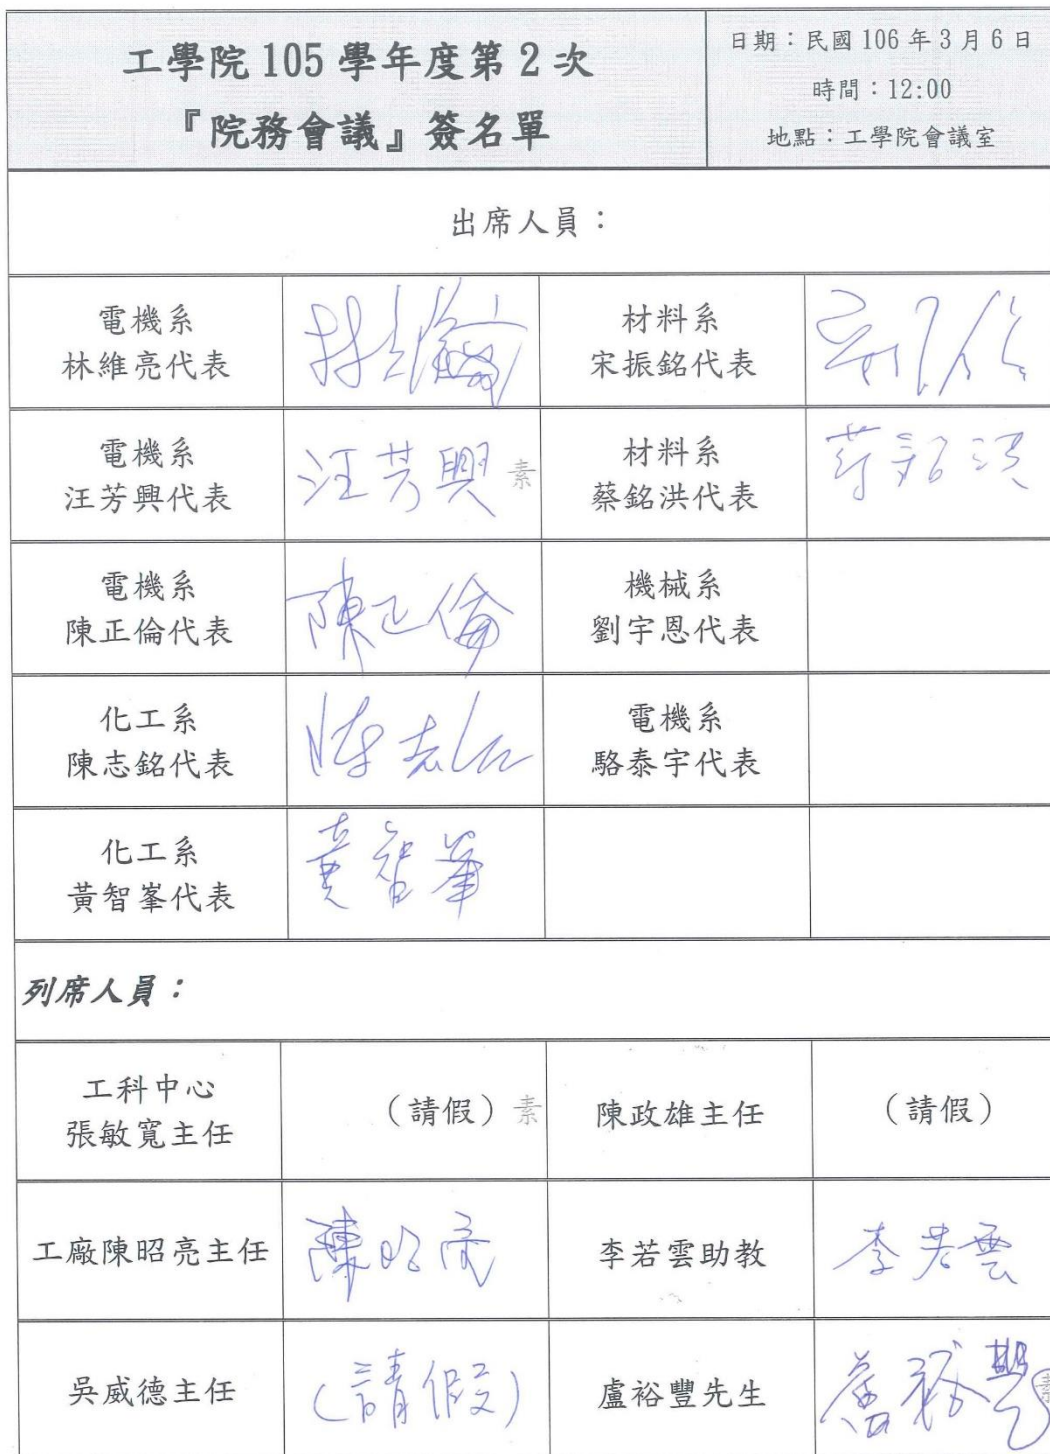 工學院 105 學年度第 2 次
『院務會議』簽名單
日期：民國 106 年 3 月 6 日
時間：12:00
地點：工學院會議室
出席人員：
電機系
林維亮代表
材料系
宋振銘代表
電機系
汪芳興代表
汪芳興
素
材料系
蔡銘洪代表
蔡銘洪
電機系
陳正倫代表
陳正倫
機械系
劉宇恩代表
化工系
陳志銘代表
陳志銘
電機系
駱泰宇代表
化工系
黃智峯代表
黃智峯
列席人員：
工科中心
張敏寬主任
（請假）
素
陳政雄主任
（請假）
工廠陳昭亮主任
陳昭亮
李若雲助教
李若雲
吳威德主任
(請假)
盧裕豐先生